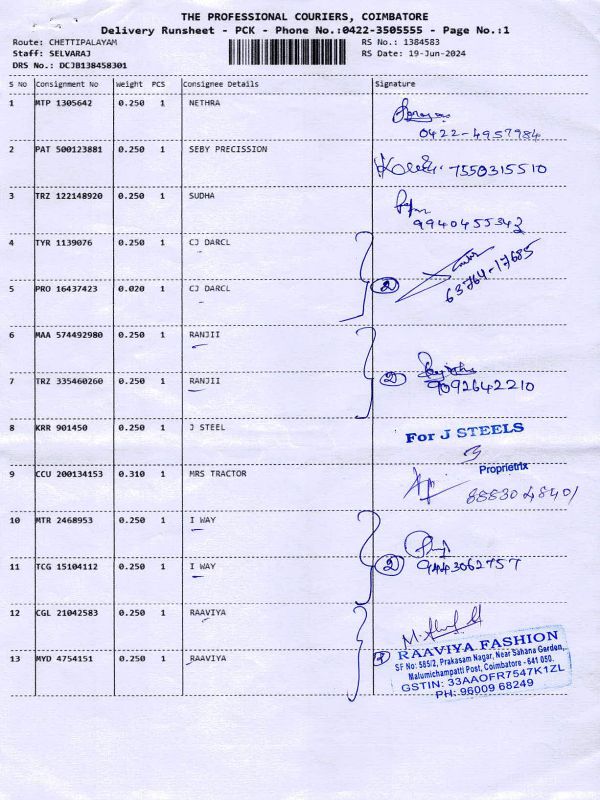 THE PROFESSIONAL COURIERS, COIMBATORE
Delivery Runsheet - PCK - Phone No.:0422-3505555 - Page No.:1
Route: CHETTIPALAYAM RS No.: 1384583
Staff: SELVARAJ RS Date: 19-Jun-2024
DRS No.: DCJB138458301
S No Consignment No Weight PCS Consignee Details Signature
1 MTP 1305642 0.250 1 NETHRA
0422-4957984
2 PAT 500123881 0.250 1 SEBY PRECISSION 7550315510
3 TRZ 122148920 0.250 1 SUDHA
9940455342
4 TYR 1139076 0.250 1 CJ DARCL 63764-17685
5 PRO 16437423 0.020 1 CJ DARCL 2
6 MAA 574492980 0.250 1 RANJII
7 TRZ 335460260 0.250 1 RANJII 2 9092642210
8 KRR 901450 0.250 1 J STEEL For J STEELS
Proprietrix
9 CCU 200134153 0.310 1 MRS TRACTOR 8883048401
10 MTR 2468953 0.250 1 I WAY
11 TCG 15104112 0.250 1 I WAY 2 9443062757
12 CGL 21042583 0.250 1 RAAVIYA
13 MYD 4754151 0.250 1 RAAVIYA
RAAVIYA FASHION
SF No: 585/2, Prakasam Nagar, Near Sahana Garden,
Malumichampatti Post, Coimbatore - 641 050.
GSTIN: 33AAOFR7547K1ZL
PH: 96009 68249